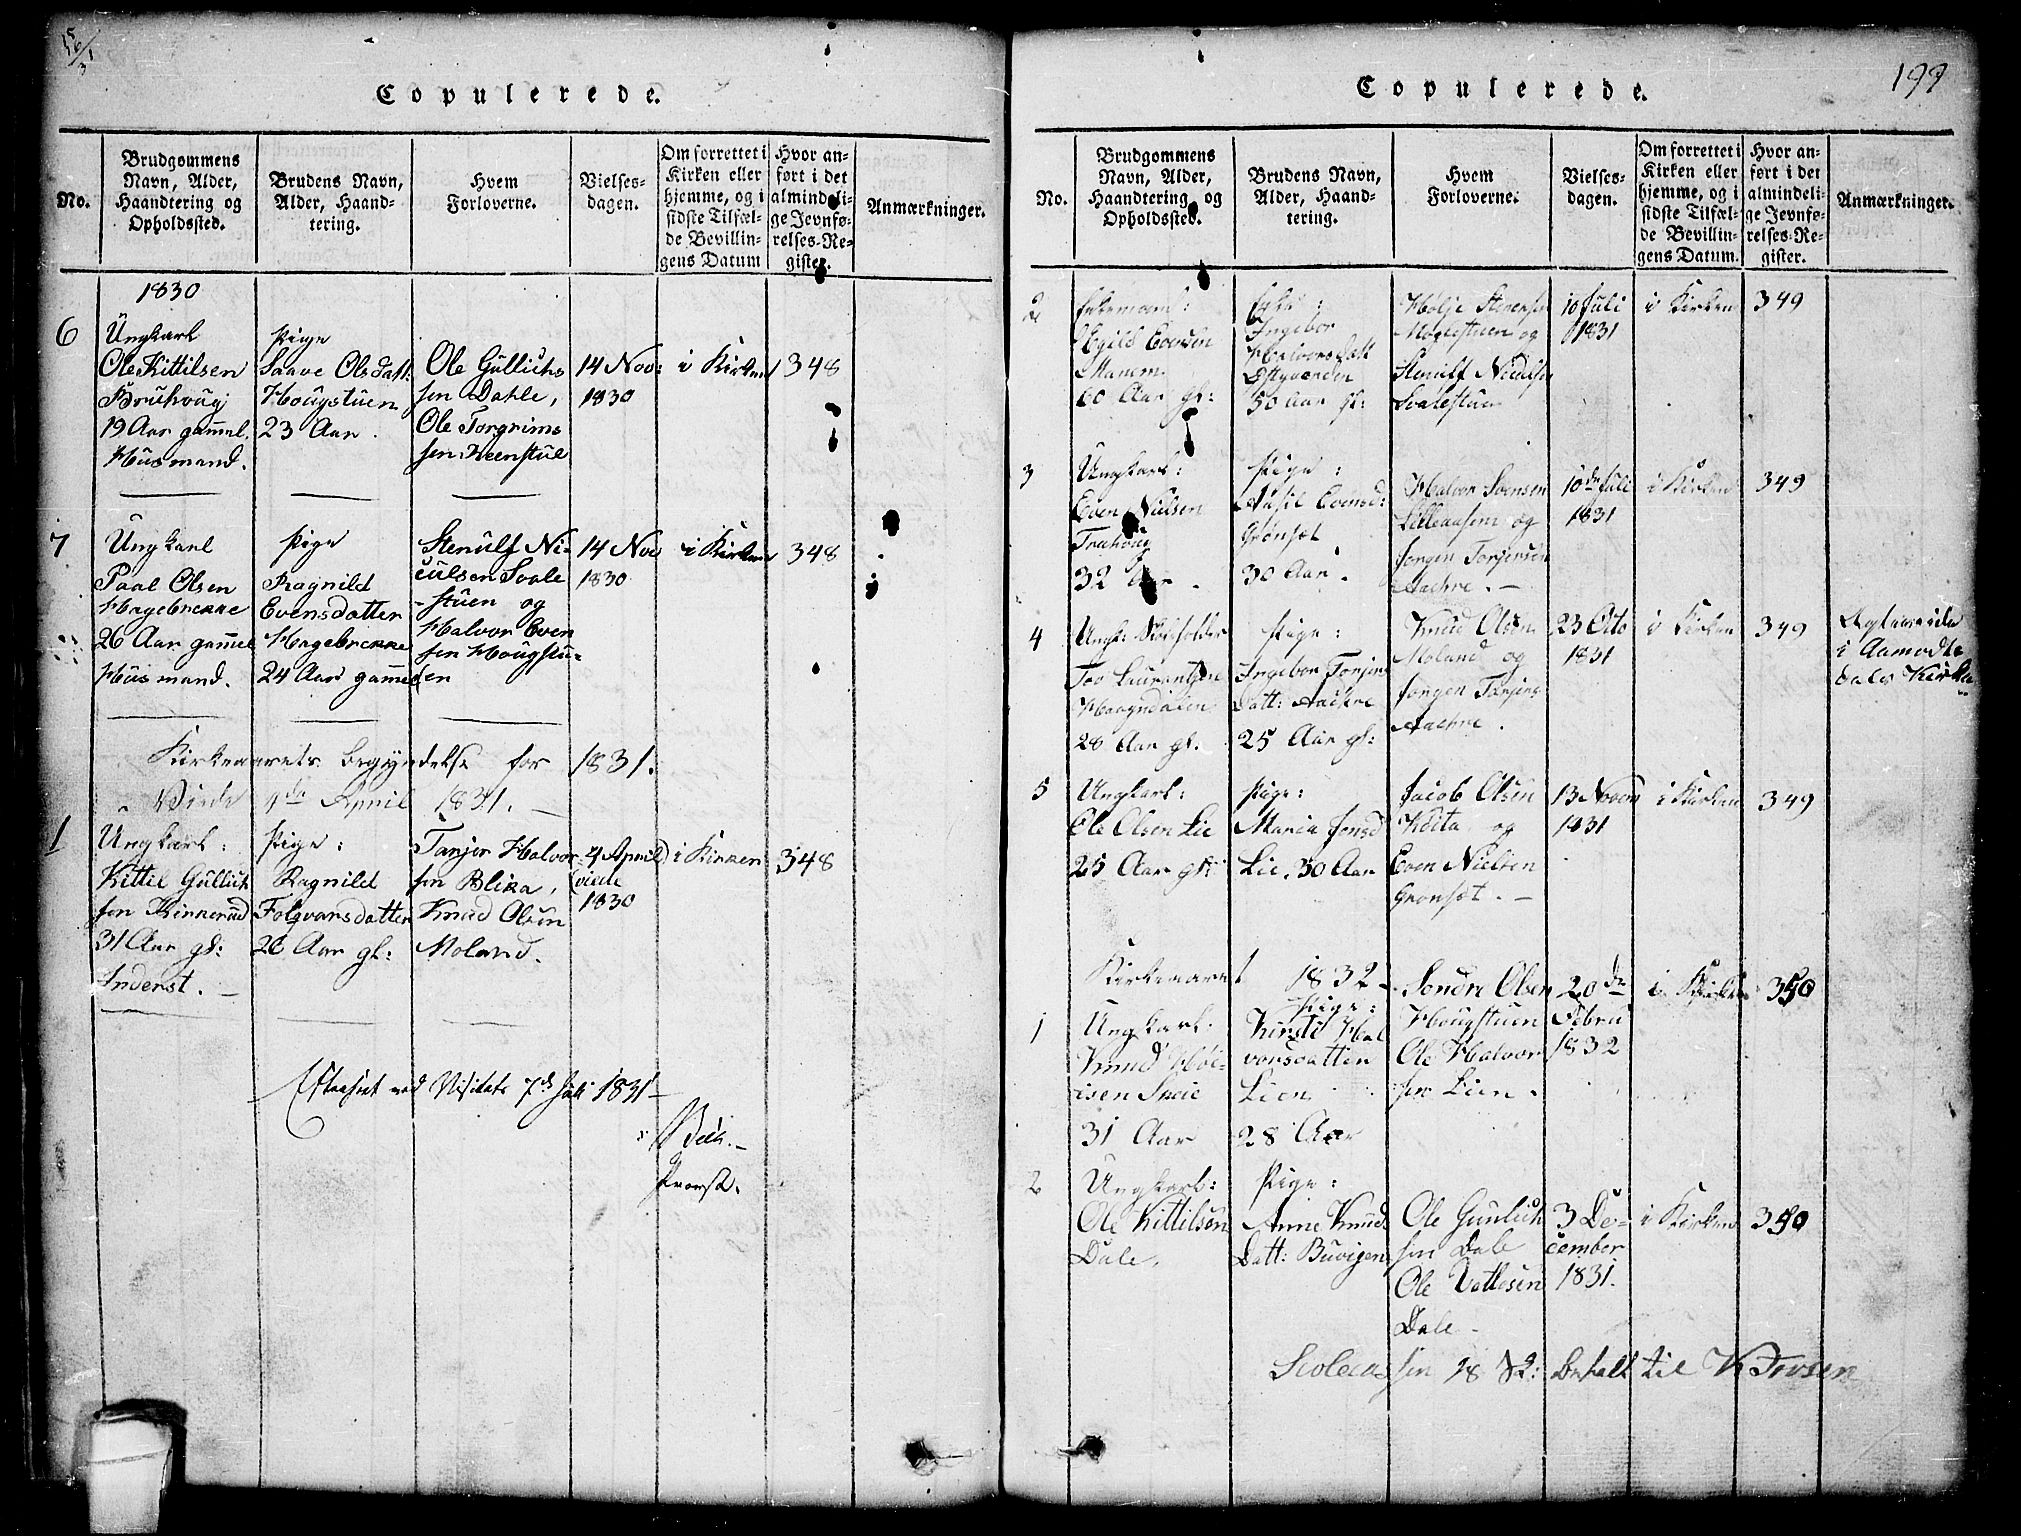 Copulerede.
No.
Brudgommens
Navn, Alder,
Haandtering og
Opholdssted.
Brudens Navn,
Alder, Haand-
tering.
Hvem
Forloverne.
Vielses-
dagen.
Om forrettet i
Kirken eller
hjemme, og i
sidste Tilfæl-
de Bevillin-
gens Datum
Hvor an-
ført i det
almindeli-
ge Jevnfø-
relses-Re-
gister.
Anmærkninger.
1830
6
Ungkarl
Ole Kittilsen
Bruhoug
19 Aar gamel.
Husmand.
Pige
Saave Olsdatt:
Hougstuen
23 Aar.
Ole Gullichs
sen Dahle,
Ole Torgrims
sen Steenstul
14 Nov:
1830
i Kirken
348
7
Ungkarl
Paal Olsen
Hagebrekke
26 Aar gamel
Husmand.
Pige
Ragnild
Evensdatter
Hagebrekke
24 Aar gammel
Stenulf Ni-
culsen Svale
-stuen og
Halvor Even
sen Hougstu-
en
14 Nov
1830
i Kirken
348
Kirkeaarets begyndelse for 1831.
Viede 4de April 1831. —
1
Ungkarl:
Kittil Gullich
sen Kinnerud
31 Aar gl:
Inderst. —
Pige:
Ragnild
Folqvarsdatter
26 Aar gl:
Tarjer Halvor
sen Blika,
Knud Olsen
Moland.
4 April
viede
1830
i Kirken
348
Efterseet ved Visitats 7de Juli 1831 —
Provst.
Copulerede.
199
No.
Brudgommens
Navn, Alder,
Haandtering og
Opholdssted.
Brudens Navn,
Alder, Haand-
tering.
Hvem
Forloverne.
Vielses-
dagen.
Om forrettet i
Kirken eller
hjemme, og i
sidste Tilfæl-
de Bevillin-
gens Datum.
Hvor an-
ført i det
almindeli-
ge Jevnfø-
relses-Re-
gister.
Anmærkninger.
2
Enkemand:
Egild Evensen
Manem.
60 Aar gl:
Enke:
Ingebor
Halvorsdatt
50 Aar gl:
Stenulf Niculsen
Svalestuen
10 Juli
1831
i Kirken
349
3
Ungkarl:
Even Nielsen
Traahoug
32 Aar.
Pige:
Aasil Evensd:
Grønset
30 Aar.
Halvor Svensen
Lilleaasen og
Jørgen Torjersen
Aachre. —
10de Juli
1831
i Kirken
349
4
Ungk:
Tov Laurantsen
Haagndalen
28 Aar gl.
Pige:
Ingebor Torjers
Datt: Aachre
25 Aar gl:
Knud Olsen
Moland og
Jørgen Torjers
Aachre.
23 Octo
1831
i Kirken
349
i Aamodts
dals Kirke
5
Ungkarl:
Ole Olsen Lie
25 Aar gl:
Pige:
Maria Jonsd
Lie. 30 Aar
Jacob Olsen
Kleita og
Even Nielsen
Grønset. —
13 Novem
1831
i Kirken
349
Kirkeaaret 1832 -
1
Ungkarl.
Knud Høi-
isen Skeie
31 Aar
Pige:
Kirsti Hal
vorsdatter
Lien
28 Aar
Søndre Olsen
Hougstuen
Ole Halvor
sen Lien.
20de
Febru
1832
i Kirken
350
2
Ungkarl:
Ole Kittilsen
Dale.
Pige:
Anne Knuds
Datt: Buvigen
Ole Gunlich
sen Dale
Ole Vetlesen
Dale -
3 De-
cember
1831.
i Kirken
350
til